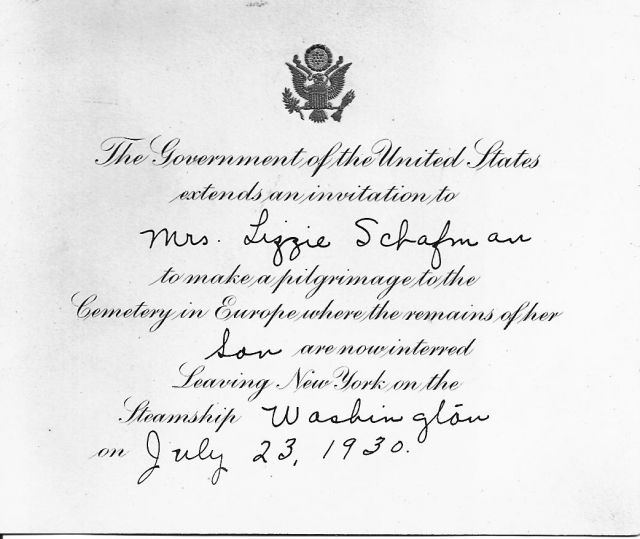 The Government of the United States
extends an invitation to
Mrs. Lizzie Schafman
to make a pilgrimage to the
Cemetery in Europe where the remains of her
Son are now interred
Leaving New York on the
Steamship Washington
on July 23, 1930.